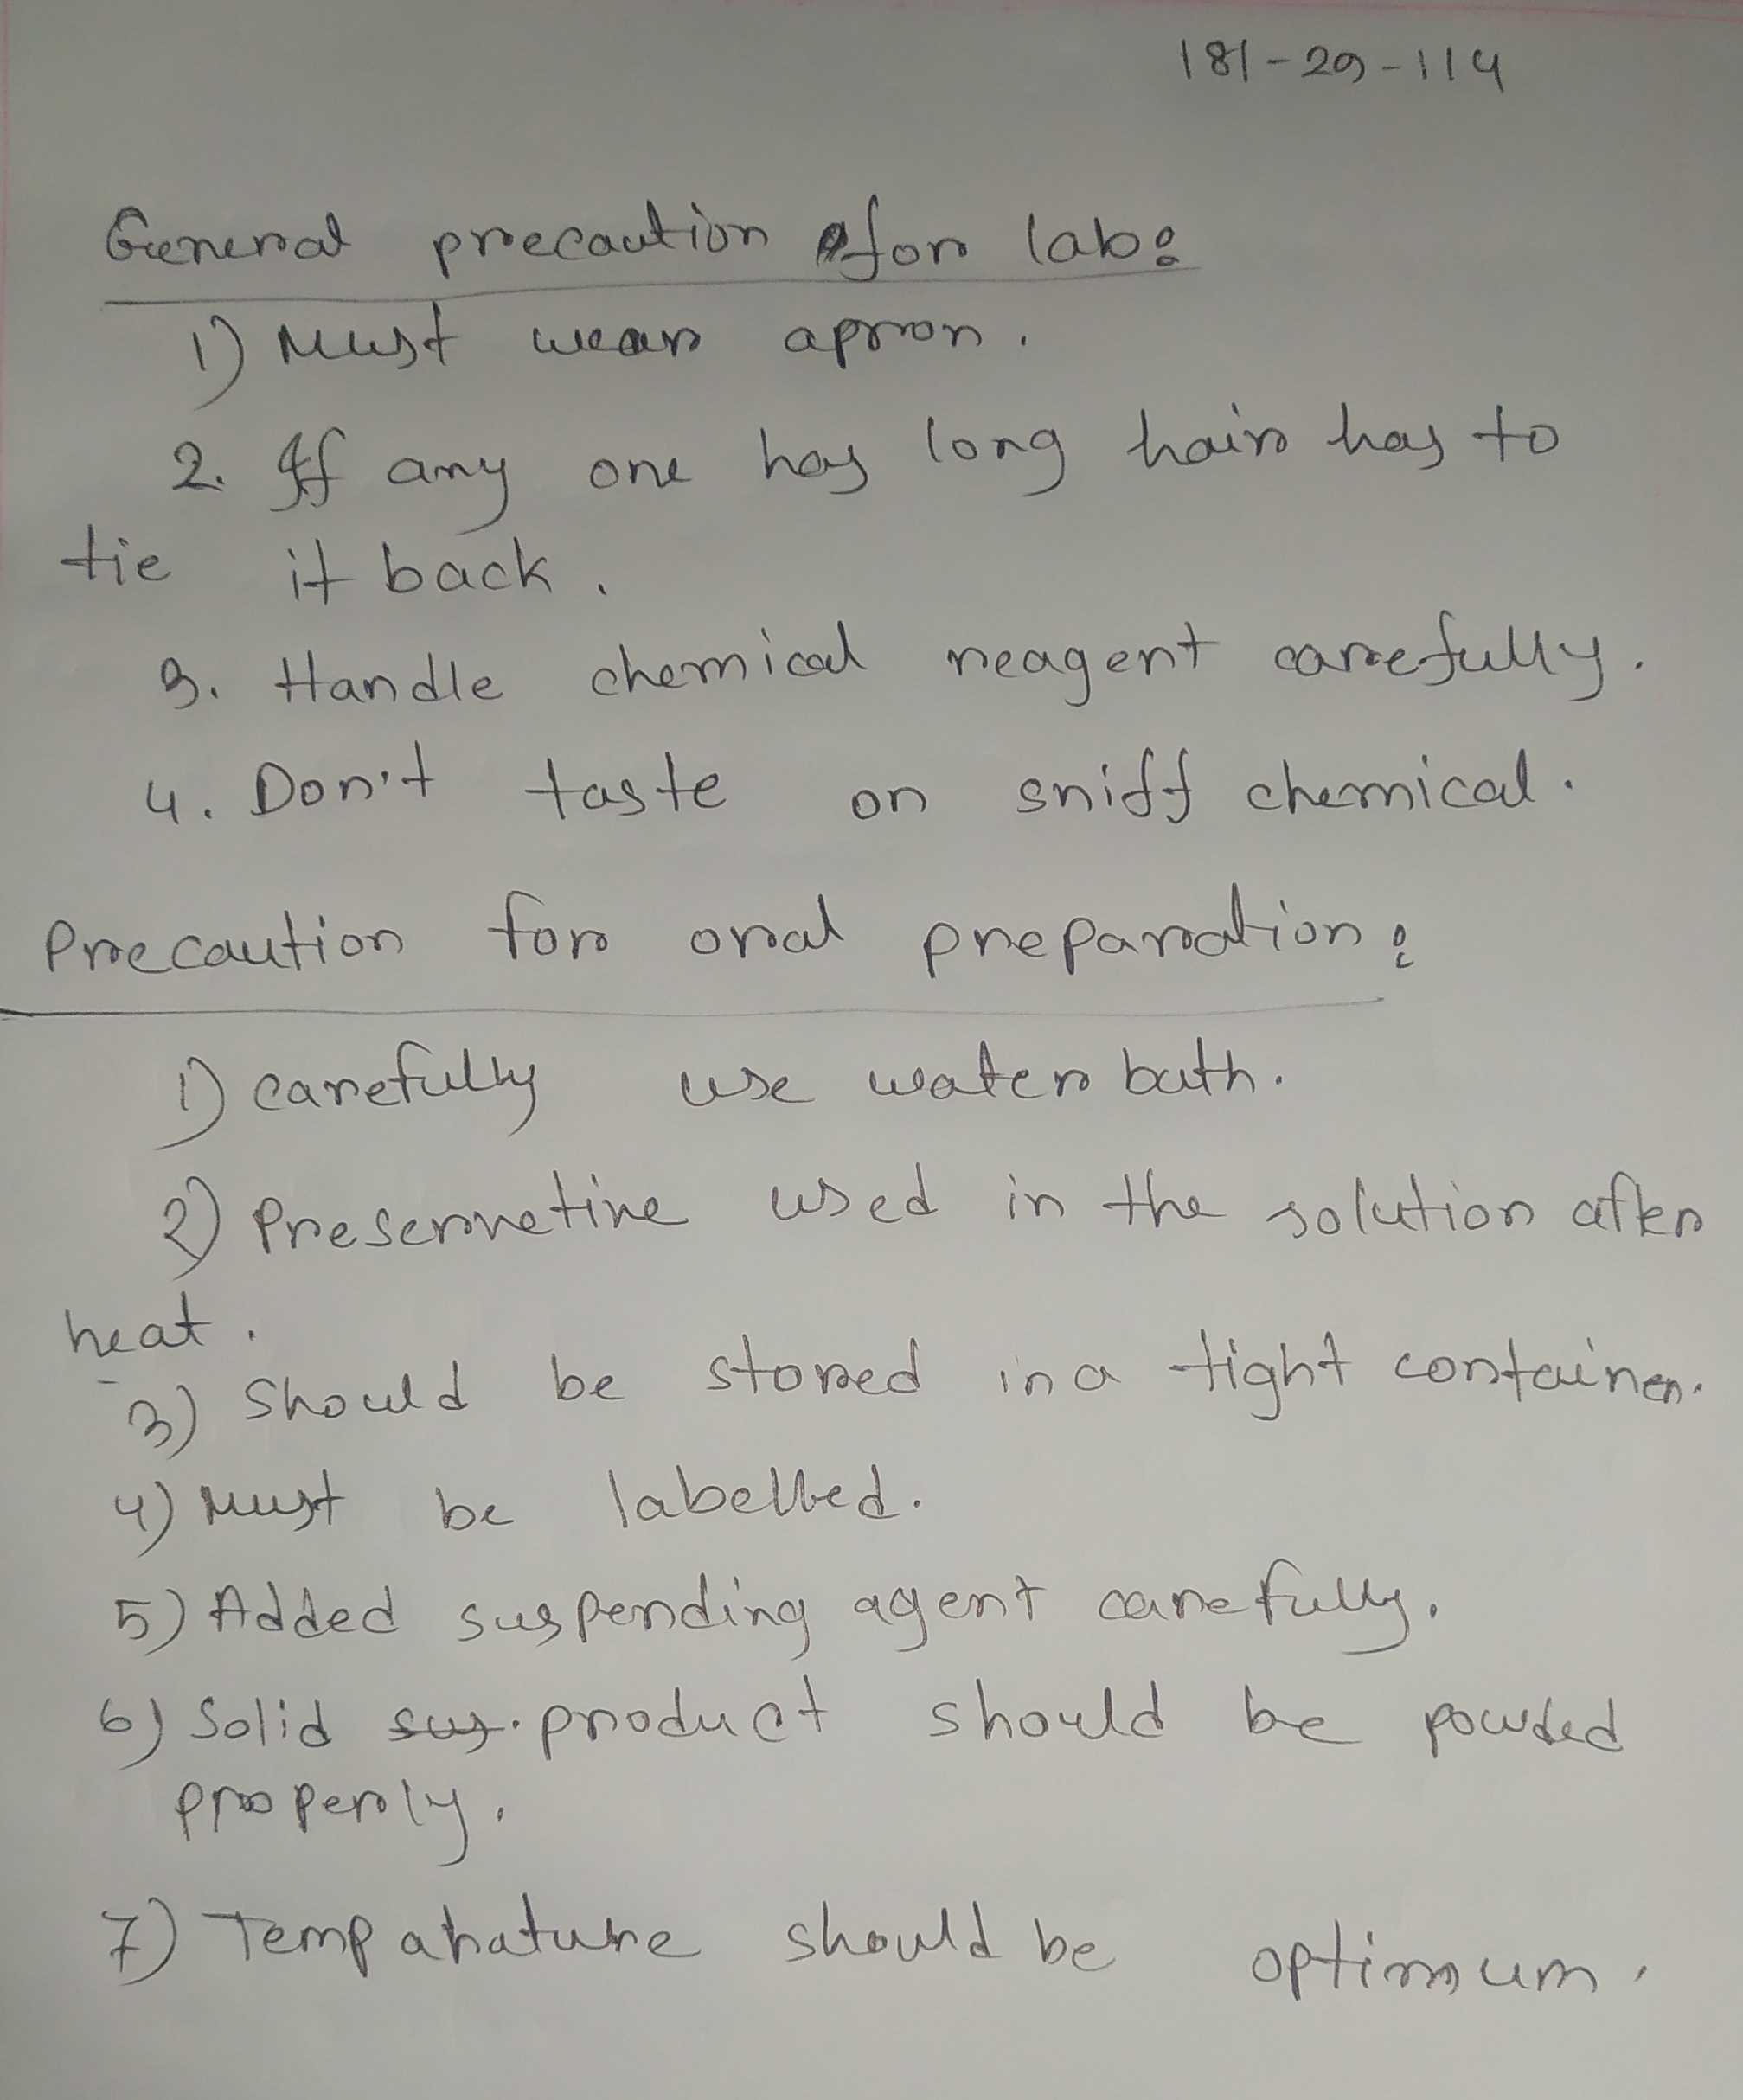 181-29-114
General precaution for lab:
1) Must wear apron.
2. If any one has long hair has to
tie it back.
3. Handle chemical reagent carefully.
4. Don't taste or sniff chemical.
Precaution for oral preparation:
1) carefully use water bath.
2) Preservetive used in the solution after
heat.
3) Should be stored in a tight container.
4) Must be labelled.
5) Added suspending agent carefully.
6) Solid sus. product should be powded
properly.
7) Tempahature should be optimum.